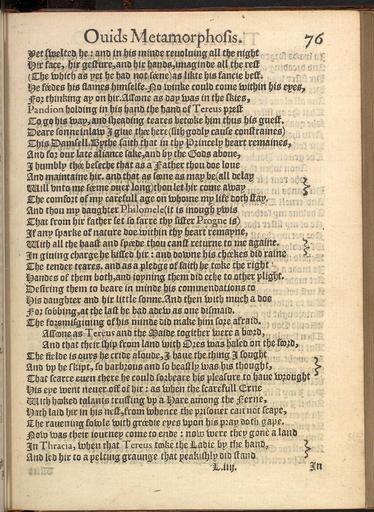 Ouids Metamorphosis. 76
Yet swelted he: and in his minde reuoluing all the night
Hir face, hir gesture, and hir hands, imaginde all the rest
(The which as yet he had not seene) as likte his fancie best.
He feedes his flames himselfe. No winke could come within his eyes,
For thinking ay on hir. Assone as day was in the skies,
Pandion holding in his hand the hand of Tereus prest
To go his way, and sheading teares betooke him thus his guest.
Deare sonne in law I giue thee here (sith godly cause constraines)
This Damsell. By the faith that in thy Princely heart remaines,
And for our late aliance sake, and by the Gods aboue,
I humbly thee beseche that as a Father thou doe loue
And maintaine hir. and that as soone as may be (all delay
Will vnto me seeme ouer long) thou let hir come away
The comfort of my carefull age on whome my life doth stay,
And thou my daughter Philomele (it is inough ywis
That from hir father set so farre thy sister Progne is)
If any sparke of nature doe within thy heart remayne,
With all the haast and speede thou canst returne to me againe.
In giuing charge he kissed hir: and downe his cheekes did raine
The tender teares, and as a pledge of faith he tooke the right
Handes of them both, and ioyning them did eche to other plight,
Desiring them to beare in minde his commendations to
His daughter and hir little sonne. And then with much a doe
For sobbing, at the last he bad adew as one dismaid.
The foremisgiuing of his minde did make him sore afraid.
Assone as Tereus and the Maide togither were a bord,
And that their ship from land with Ores was haled on the foord,
The fielde is ours he cride aloude, I haue the thing I sought
And vp he skipt, so barbrous and so beastly was his thought,
That scarce euen there he could forbeare his pleasure to haue wrought
His eye went neuer off of hir: as when the scarefull Erne
With hooked talants trussing vp a Hare among the Ferne,
Hath laid hir in his nest, from whence the prisoner can not scape,
The rauening fowle with greedie eyes vpon his pray doth gape.
Now was their iourney come to ende: now were they gone a land
In Thracia, when that Tereus tooke the Ladie by the hand,
And led hir to a pelting graunge that peakishly did stand
L.iiij. In